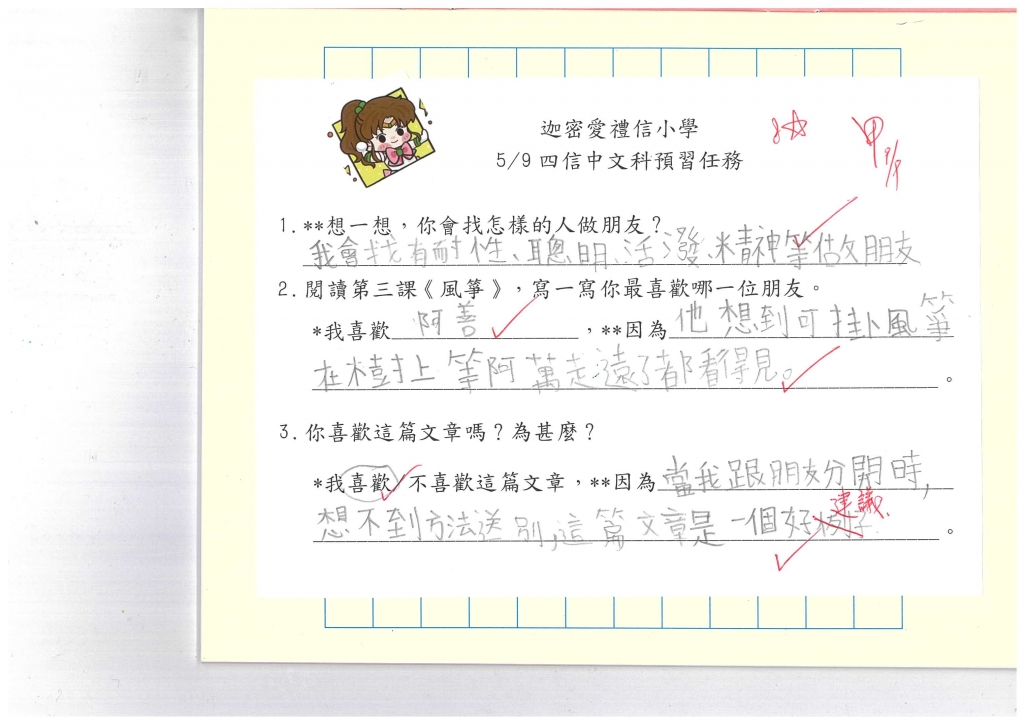 迦密愛禮信小學
5/9 四信中文科預習任務
甲
9/9
1. **想一想，你會找怎樣的人做朋友？
我會找有耐性、聰明、活潑、精神等做朋友
2. 閱讀第三課《風箏》，寫一寫你最喜歡哪一位朋友。
*我喜歡 阿善，**因為他想到可掛風箏
在樹上等阿萬走遠了都看得見。。
3. 你喜歡這篇文章嗎？為甚麼？
*我喜歡/不喜歡這篇文章，**因為當我跟朋友分開時，
建議
想不到方法送別，這篇文章是一個好例子。